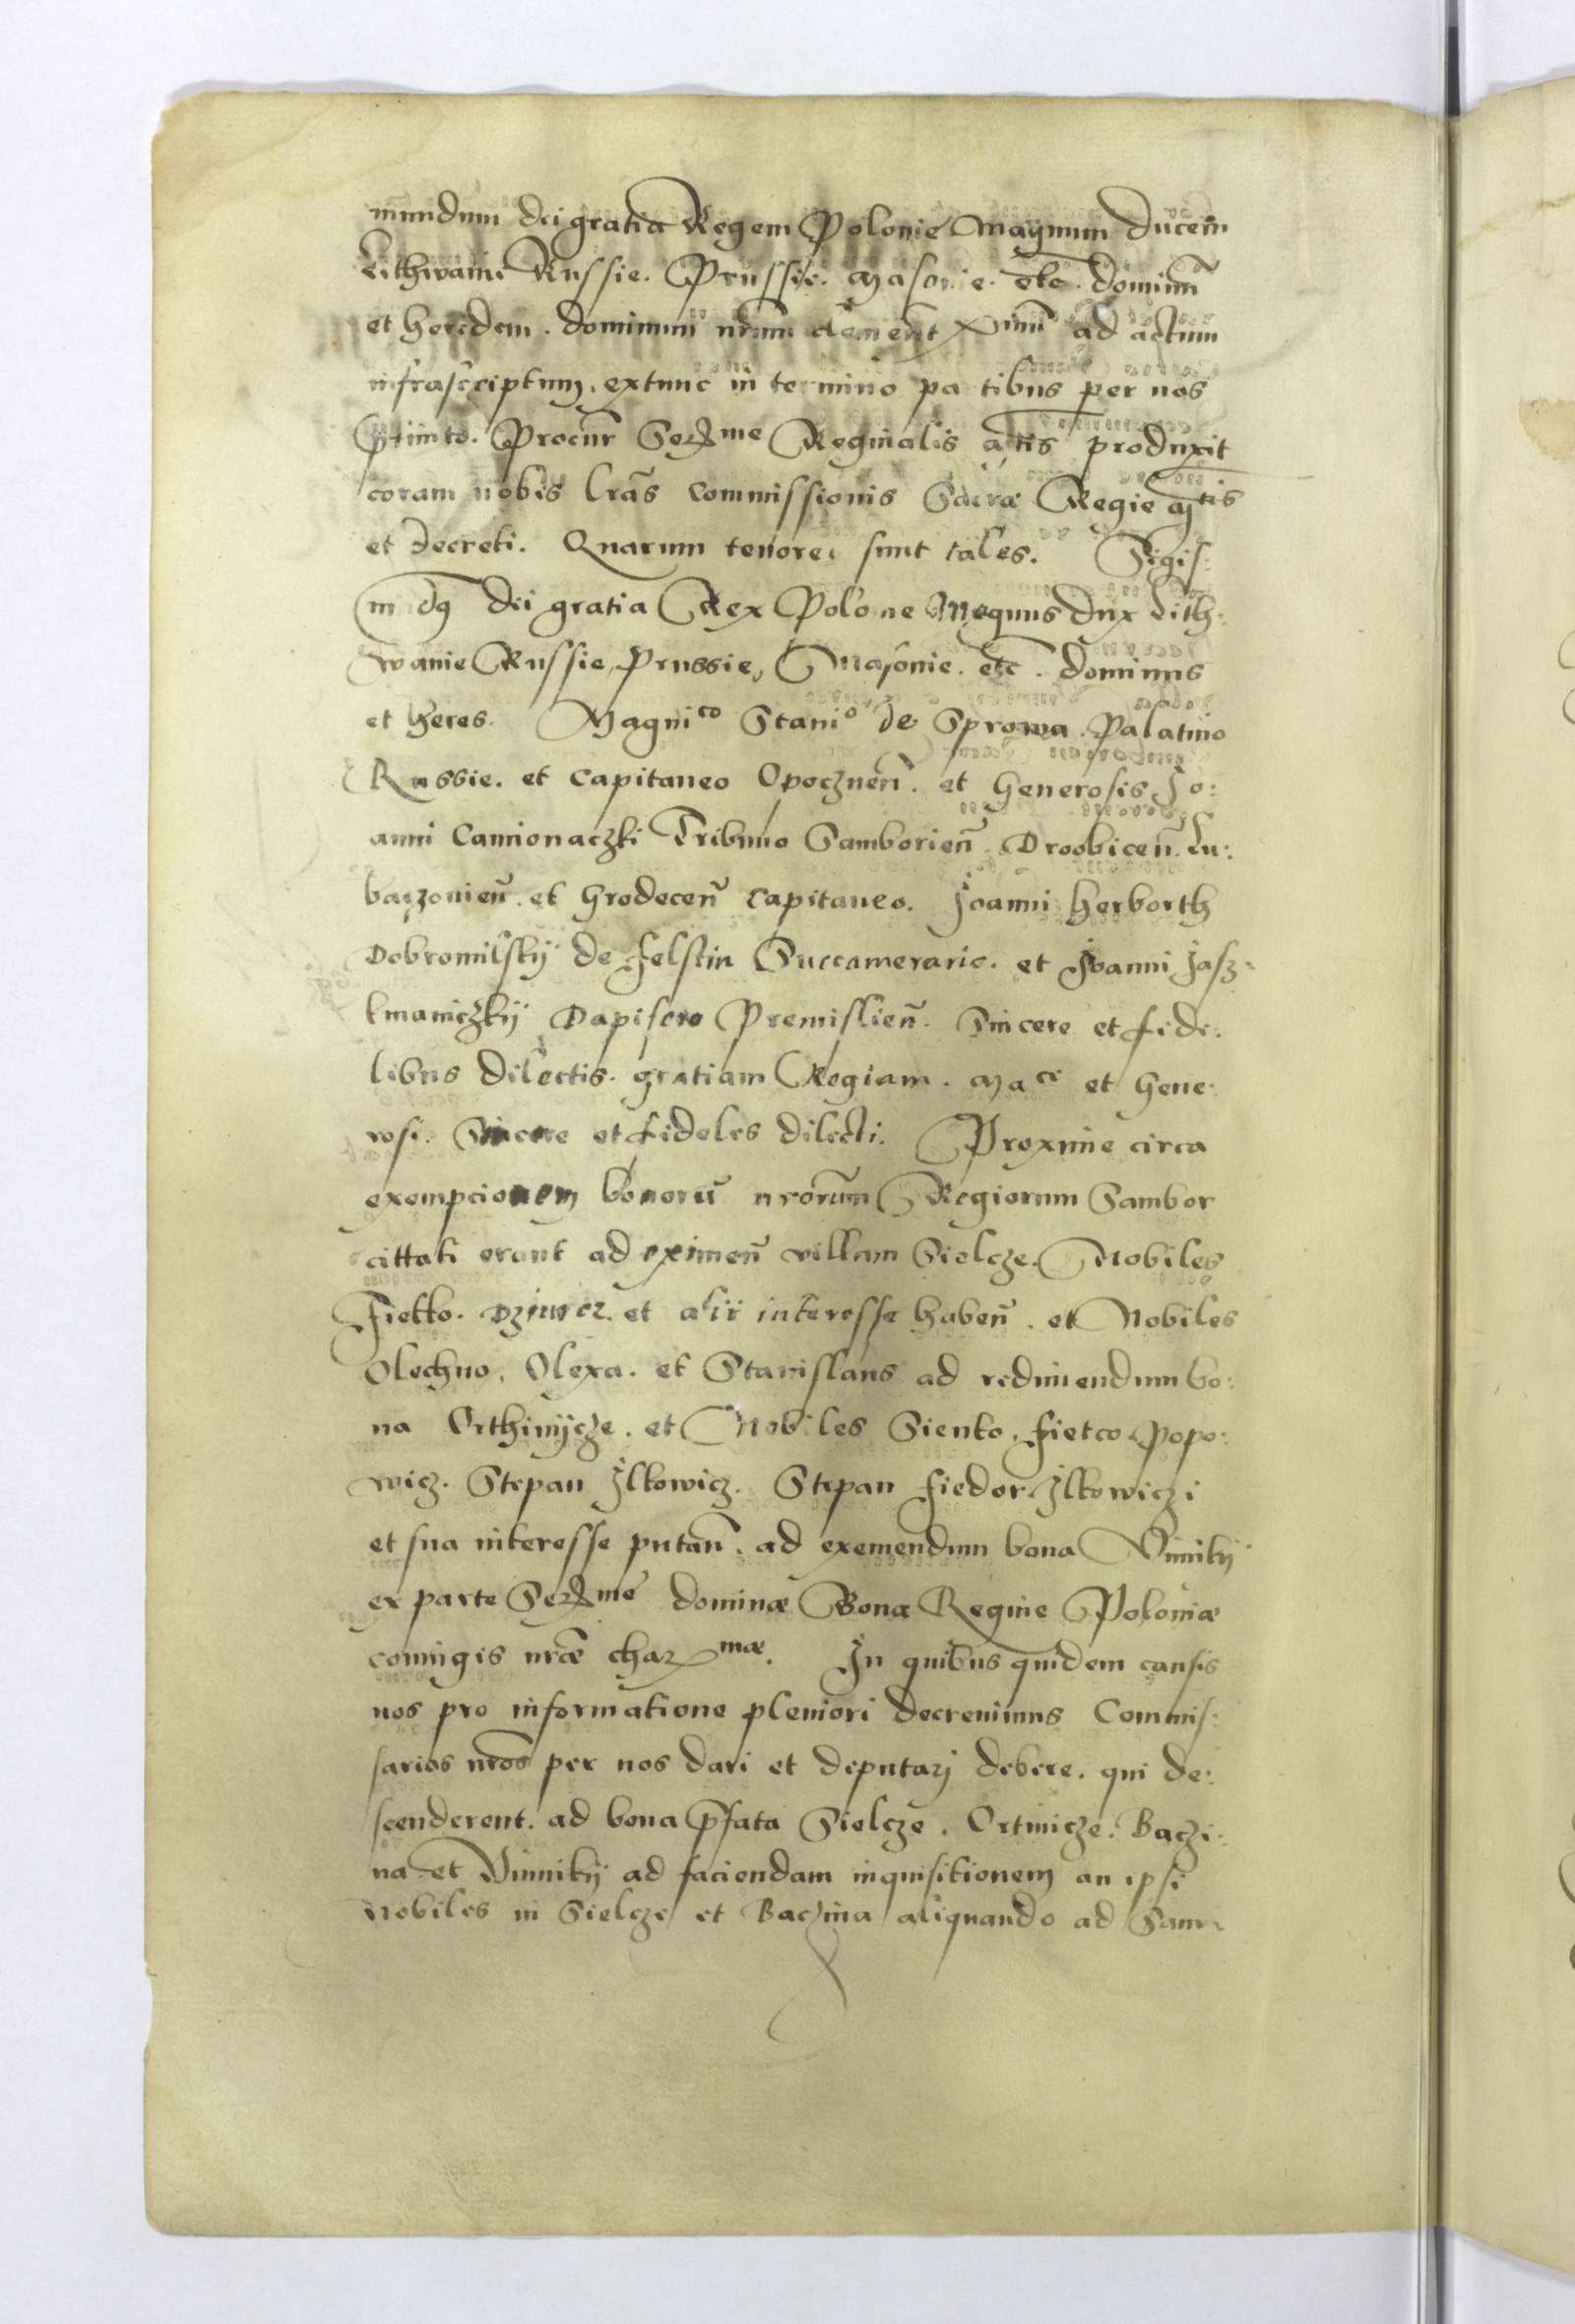 mundum dei gratia Regem Polonie Magnum ducem
Lithwanie Russie. Prussie. Masovie. etc. dominũ
et heredem. dominum nrum clement ximũ ad actum
infrascriptum, extunc in termino partibus per nos
Procur̃ Serme Reginalis Mtis produxit
coram nobis lrãs commissionis Sacrae Regie Mtis
et decreti. Quarum tenores sunt tales. Sigis:
mũdus dei gratia Rex Polonie Magnus dux Lith:
wanie Russie, Prussie, Masovie. etc. dominus
et heres. Magnico Stanio de Sprowa. Palatino
Russie. et Capitaneo Opocznen̄. et Generosis Jo:
anni Camionaczki Tribuno Samborien̄. Droobicen̄. Lu:
baczovien̄. et Grodecen̄ Capitaneo. Joanni Herborth
Dobromilskÿ de Felstin Succamerario. et Joanni Jasz:
kmaniczkÿ Dapifero Premislien̄. Sincere et fide:
libus dilectis. gratiam Regiam. Mace et Gene:
rosi. Sincere et fideles dilecti. Proxime circa
exempcionem bonorũ nrorum Regiorum Sambor
cittati erant ad eximen̄ villam Sielcze. Nobiles
Fietko. et alii interesse haben̄. et Nobiles
Olechno, Olexa. et Stanislaus ad redimendum bo:
na Orthinÿcze. et Nobiles Sienko, Fietco Popo:
wicz. Stepan Ilkowicz. Stepan Fiedor Ilkowiczi
et sua interesse putan̄. ad exemendum bona Vinnikÿ
ex parte Serme dominae Bonae Regine Poloniae
coniugis nrae charmae. In quibus quidem causis
nos pro informatione pleniori decrevimus Commis:
sarios nros per nos dari et deputarj debere. qui de:
scenderent. ad bona p̃fata Sielcze. Ortinicze. Baczi:
na et Vinnikÿ ad faciendam inquisitionem an ipsi
Nobiles in Sielcze et Baczina aliquando ad Sam